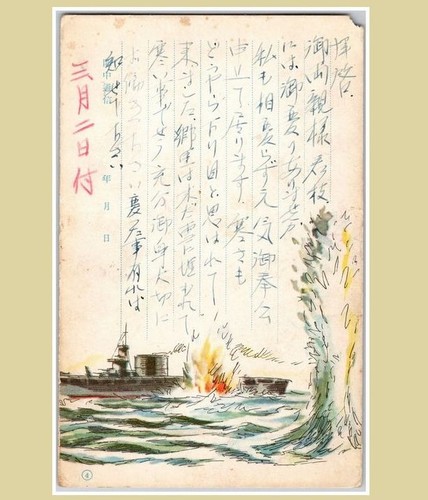 拝啓、
御両親様 君枝
には御変りありませんか
私も相変らず元気御奉公
申上て居ります、寒さも
どうやら下り目と思はれて
来ました郷里は未だ雪に埋まれて
寒い事でせう充分御身大切に
お働き下さい変つた事有れば
知せ下さい
年 月 日
三月二日付